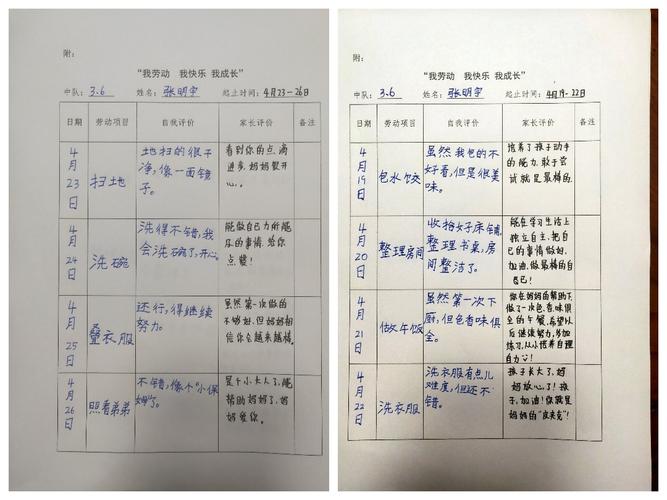 附:
“我劳动 我快乐 我成长”
中队: 3.6 姓名: 张明宇 起止时间: 4月23-26日
日期 劳动项目 自我评价 家长评价 备注
4月23日
扫地
地扫的很干
净,像一面镜
子。
看到你的点滴
进步,妈妈很开
心。
4月24日
洗碗
洗得不错,我
会洗碗了,开心
能做自己力所能
及的事情,给你
点赞!
4月25日
叠衣服
还行,得继续
努力。
虽然第一次做的
不够好,但妈妈相
信你会越来越棒。
4月26日
照看弟弟
不错,像个“小保
姆”了。
是个小大人了,能
帮助妈妈了,妈
妈爱你。
附:
“我劳动 我快乐 我成长”
中队: 3.6 姓名: 张明宇 起止时间: 4月19-22日
日期 劳动项目 自我评价 家长评价 备注
4月19日
包水饺
虽然我包的不
好看,但是很美
味。
培养了孩子动手
的能力,敢于尝
试就是最棒的.
4月20日
整理房间
收拾好床铺,
整理书桌,房
间整洁了。
能在学习生活上
独立自主,把自
己的事情做好,
加油,做最棒的自
己!
4月21日
做午饭
虽然第一次下
厨,但色香味俱
全。
你在妈妈的帮助下,
做了一次色、香、味俱
全的午餐,希望以
后继续努力,多加
练习,从小培养自理
自力
4月22日
洗衣服
洗衣服有点儿
难度,但还不
错。
孩子长大了,妈
妈放心了!孩
子,加油!你就是
妈妈的“皮夹克”!